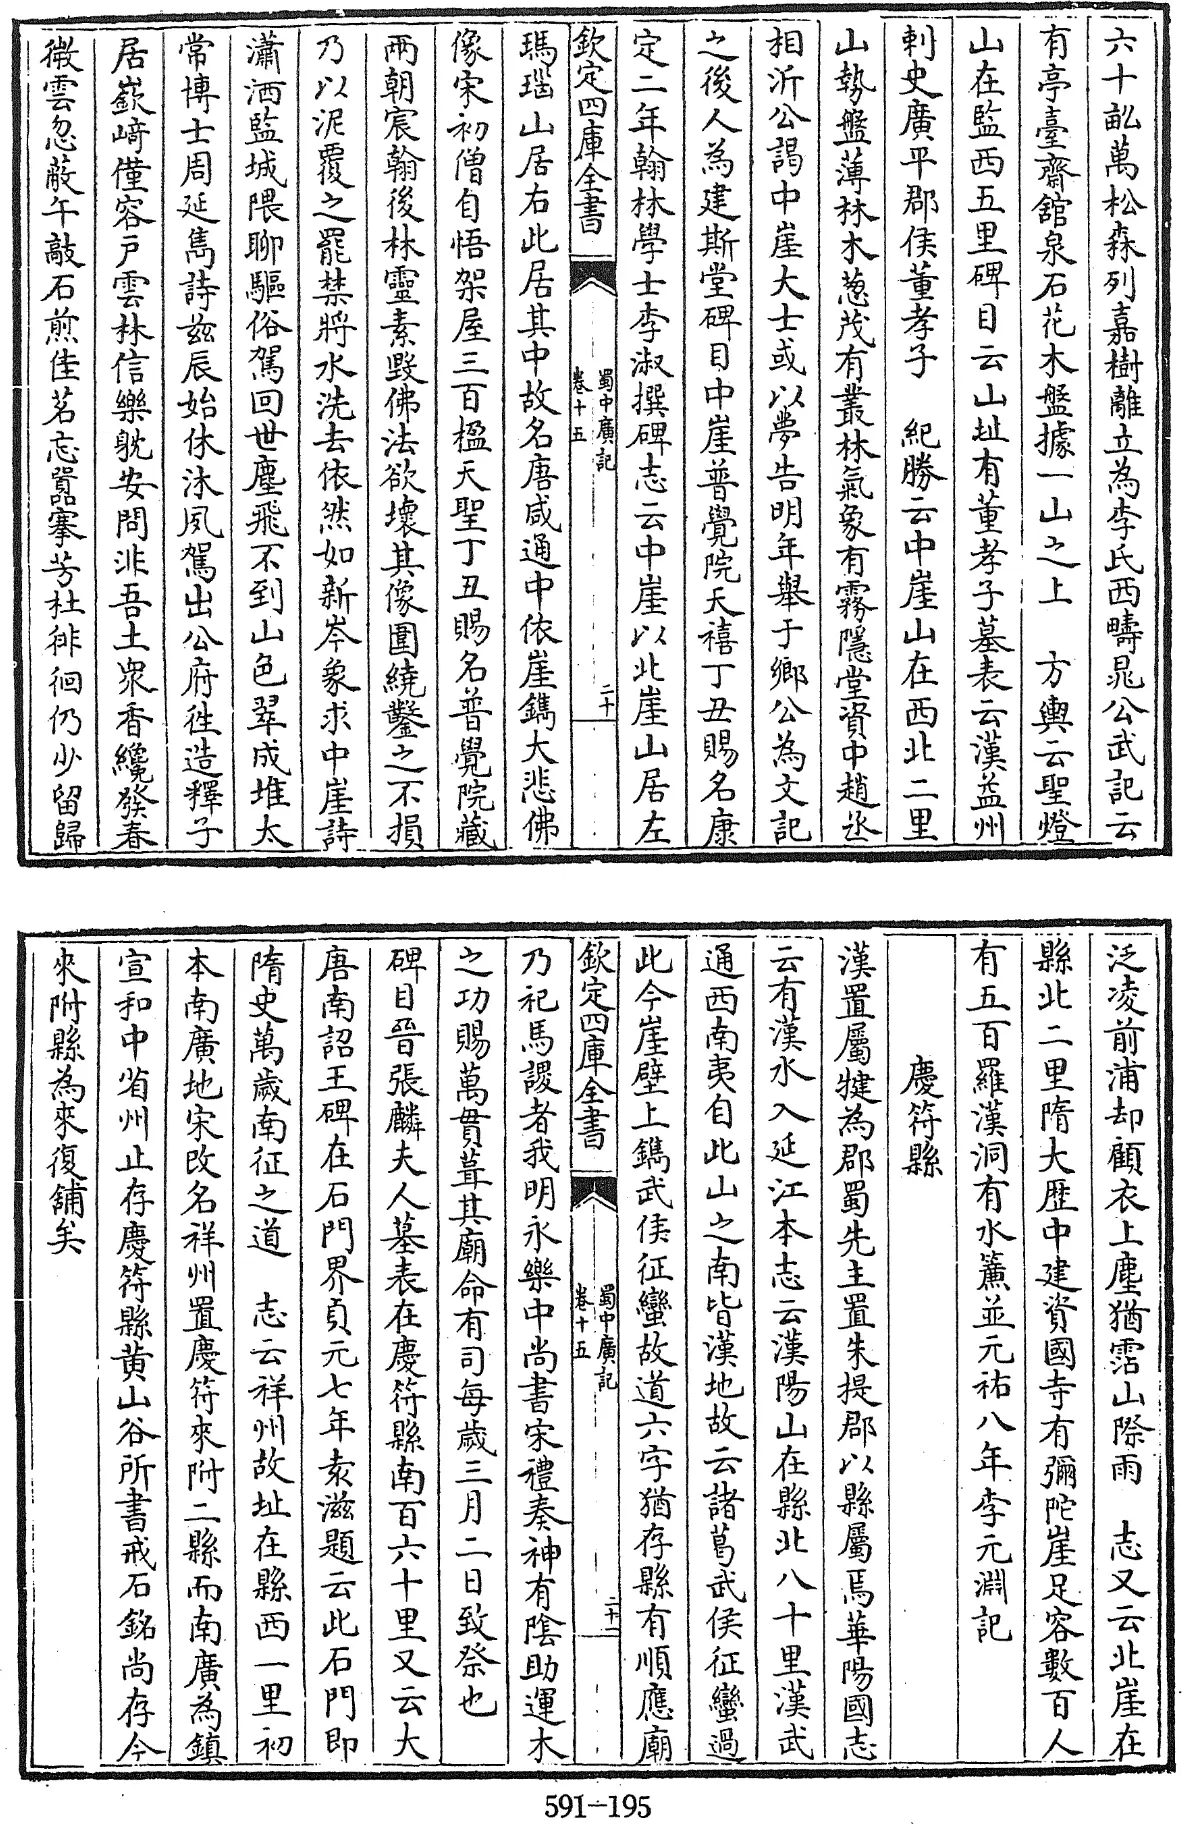 六十畝萬松森列嘉樹離立為李氏西疇晁公武記云
有亭臺齋館泉石花木盤據一山之上　方輿云聖燈
山在監西五里碑目云山址有董孝子墓表云漢益州
刺史廣平郡侯董孝子　紀勝云中崖山在西北二里
山勢盤薄林木葱茂有叢林氣象有霧隱堂資中趙丞
相沂公謁中崖大士或以夢告明年舉于鄉公為文記
之後人為建斯堂碑目中崖普覺院天禧丁丑賜名康
定二年翰林學士李淑撰碑志云中崖以北崖山居左
欽定四庫全書
蜀中廣記
卷十五
二十
瑪瑙山居右此居其中故名唐咸通中依崖鐫大悲佛
像宋初僧自悟架屋三百楹天聖丁丑賜名普覺院藏
兩朝宸翰後林靈素毀佛法欲壞其像圍繞鑿之不損
乃以泥覆之罷禁將水洗去依然如新岑象求中崖詩
瀟洒監城隈聊驅俗駕回世塵飛不到山色翠成堆太
常博士周延雋詩兹辰始休沐夙駕出公府徃造釋子
居嶔﨑僅容戸雲林信樂躭安問非吾土泉香纔發春
微雲忽蔽午敲石煎佳茗忘囂搴芳杜徘徊仍少留歸
泛凌前浦却顧衣上塵猶霑山際雨　志又云北崖在
縣北二里隋大厯中建資國寺有彌陀崖足容數百人
有五百羅漢洞有水簾並元祐八年李元淵記
慶符縣
漢置屬犍為郡蜀先主置朱提郡以縣屬焉華陽國志
云有漢水入延江本志云漢陽山在縣北八十里漢武
通西南夷自此山之南皆漢地故云諸葛武侯征蠻過
此今崖壁上鐫武侯征蠻故道六字猶存縣有順應廟
欽定四庫全書
蜀中廣記
卷十五
二十一
乃祀馬謖者我明永樂中尚書宋禮奏神有陰助運木
之功賜萬貫葺其廟命有司每歲三月二日致祭也
碑目晉張麟夫人墓表在慶符縣南百六十里又云大
唐南詔王碑在石門界貞元七年袁滋題云此石門即
隋史萬歲南征之道　志云祥州故址在縣西一里初
本南廣地宋改名祥州置慶符來附二縣而南廣為鎮
宣和中省州止存慶符縣黄山谷所書戒石銘尚存今
來附縣為來復舖矣
591-195